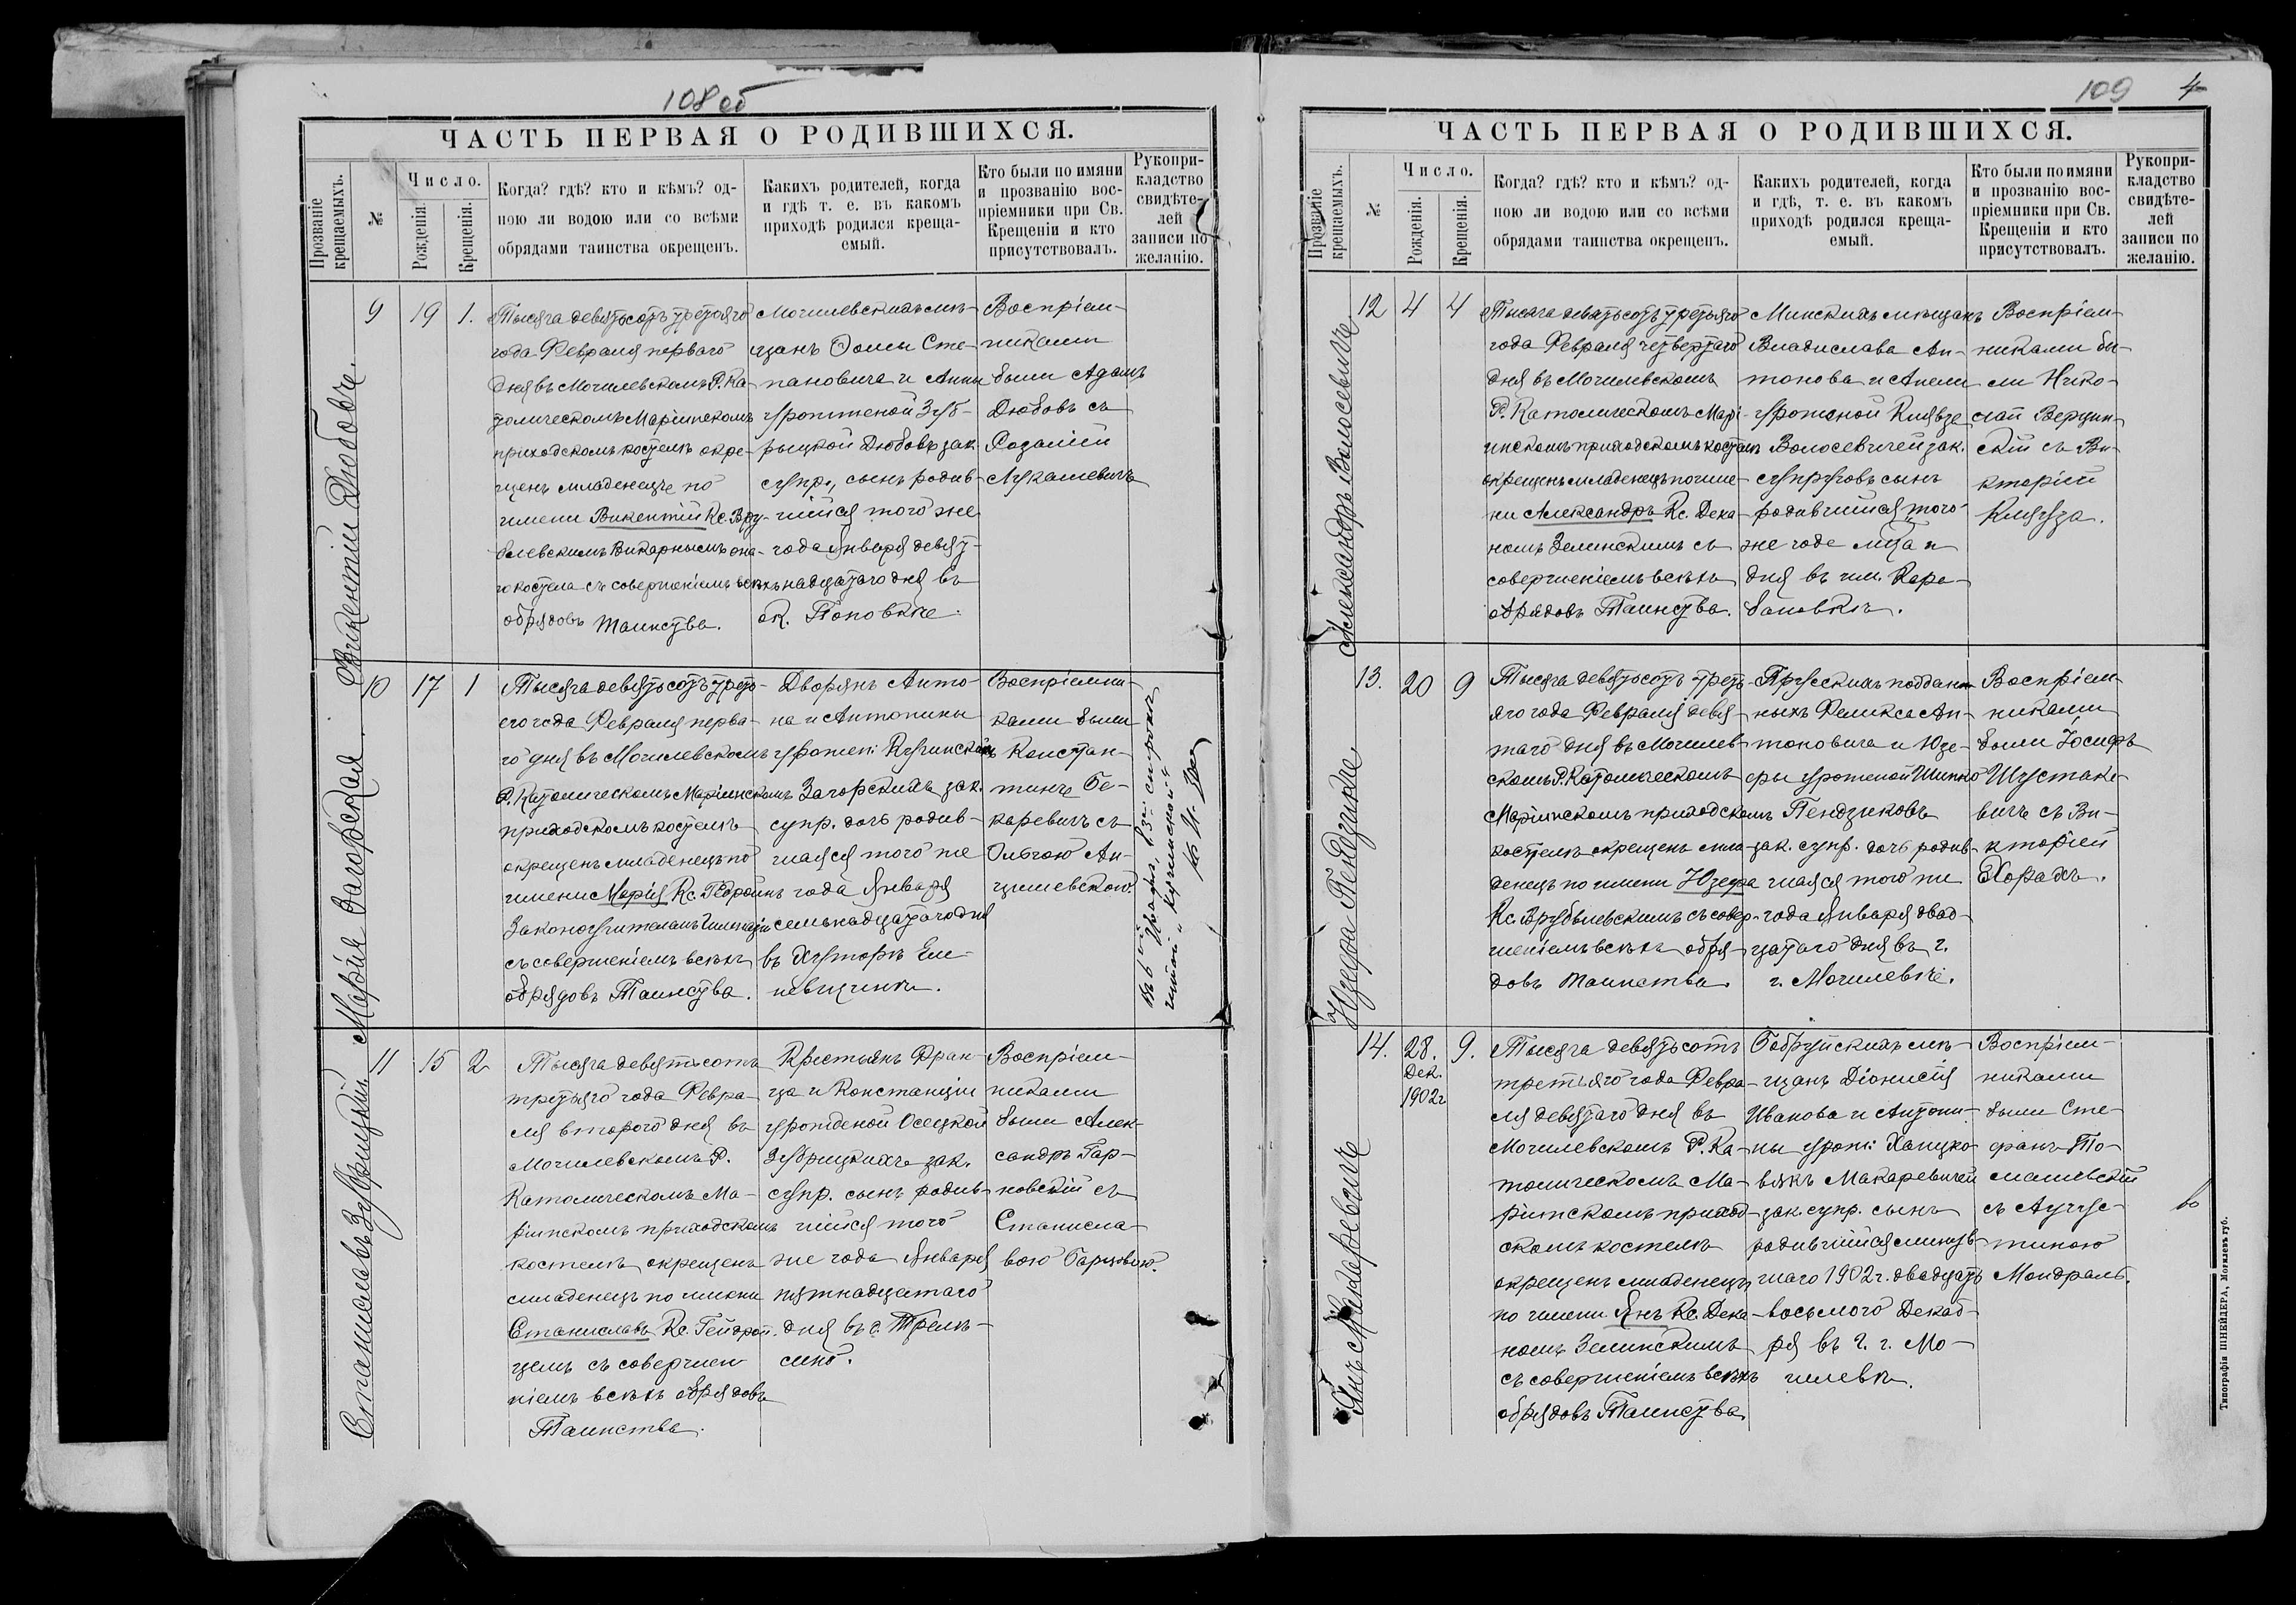 108 об
ЧАСТЬ ПЕРВАЯ О РОДИВШИХСЯ.
Прозваніе крещаемыхъ.
№
Число.
Рожденія.
Крещенія.
Когда? гдѣ? кто и кѣмъ? од-
ною ли водою или со всѣми
обрядами таинства окрещенъ.
Какихъ родителей, когда
и гдѣ т. е. въ какомъ
приходѣ родился креща-
емый.
Кто были по имяни
и прозванію вос-
пріемники при Св.
Крещеніи и кто
присутствовалъ.
Рукопри-
кладство
свидѣте-
лей
записи по
желанію.
Викентій Дюбовъ.
9
19
1.
Тысяча девятьсотъ третьяго
года Февраля перваго
дня въ Могилевскомъ Р. Ка-
толическомъ Маріинскомъ
приходскомъ костелѣ окре-
щенъ младенецъ по
имени Викентій Кс. Вру-
блевскимъ Викарнымъ она-
го костела съ совершеніемъ всѣхъ
обрядовъ Таинства.
Могилевскихъ мѣ-
щанъ Ѳомы Сте-
пановича и Анны
урожденой Зуб-
рыцкой Дюбовъ зак.
супр., сынъ родив-
шійся того же
года Января девят-
надцатаго дня въ
ок. Поповкѣ.
Воспріем-
никами
были Адамъ
Дюбовъ съ
Розаліей
Лукашевичъ
Марія Загорская.
10
17
1
Тысяча девятьсотъ треть-
его года Февраля перва-
го дня въ Могилевскомъ
Р. Католическомъ Маріинскомъ
приходскомъ костелѣ
окрещенъ младенецъ по
имени Марія Кс.
Законоучителемъ Гимназіи
съ совершеніемъ всѣхъ
обрядовъ Таинства.
Дворянъ Анто-
на и Антонины
урожен:
Загорскихъ зак.
супр. дочь родив-
шаяся того же
года Января
семьнадцатаго дня
въ Хуторѣ
Воспріемни-
ками были
Констан-
тинъ Бе-
каревичъ съ
Ольгою Ан-
цишевской.
Станиславъ Зубрицкій
11
15
2
Тысяча девятьсотъ
третьяго года Февра-
ля второго дня въ
Могилевскомъ Р.
Католическомъ Ма-
ріинскомъ приходскомъ
костелѣ окрещенъ
младенецъ по имени
Станиславъ Кс. Гейдрой-
цемъ съ совершен-
ніемъ всѣхъ обрядовъ
Таинства.
Крестьянъ Фран-
ца и Констанціи
урожденой Осецкой
Зубрицкихъ зак.
супр. сынъ родив-
шійся того
же года Января
пятнадцатаго
дня въ с.
Воспріем-
никами
были Алек-
сандръ Гар-
новскій съ
Станисла-
вою
109
4
ЧАСТЬ ПЕРВАЯ О РОДИВШИХСЯ.
Прозваніе крещаемыхъ.
№
Число.
Рожденія.
Крещенія.
Когда? гдѣ? кто и кѣмъ? од-
ною ли водою или со всѣми
обрядами таинства окрещенъ.
Какихъ родителей, когда
и гдѣ, т. е. въ какомъ
приходѣ родился креща-
емый.
Кто были по имяни
и прозванію вос-
пріемники при Св.
Крещеніи и кто
присутствовалъ.
Рукопри-
кладство
свидѣте-
лей
записи по
желанію.
Александръ Волосевичъ
12
4
4
Тысяча девятьсотъ третьяго
года Февраля четвертаго
дня въ Могилевскомъ
Р. Католическомъ Марі-
инскомъ приходскомъ костелѣ
окрещенъ младенецъ по име-
ни Александръ Кс. Дека-
номъ Зелинскимъ съ
совершеніемъ всѣхъ
обрядовъ Таинства.
Минскихъ мѣщанъ
Владислава Ан-
тонова и Анели
урожоной Князе
Волосевичей зак.
супруговъ сынъ
родившійся того
же года мѣца и
дня въ им. Кара-
бановкѣ.
Воспріем-
никами бы-
ли Нико-
лай Верцин-
скій съ Ви-
кторіей
Юзефа Пендзикъ
13.
20
9
Тысяча девятьсотъ треть-
яго года Февраля девя-
таго дня въ Могилев-
скомъ Р. Католическомъ
Маріинскомъ приходскомъ
костелѣ окрещенъ мла-
денецъ по имени Юзефа
Кс. Врублевскимъ съ совер-
шеніемъ всѣхъ обря-
довъ Таинства.
Прусскихъ поддан-
ныхъ Феликса Ан-
тоновича и Юзе-
фы урожоной Шинко
Пендзиковъ
зак. супр. дочь родив-
шаяся того же
года Января двад-
цатаго дня въ г.
г. Могилевѣ.
Воспріем-
никами
были Іосифъ
Шустаке-
вичъ съ Ви-
кторіей
Хорахъ.
Янъ Макаревичъ
14.
28.
Дек.
1902г
9.
Тысяча девятьсотъ
третьяго года Февра-
ля девятаго дня въ
Могилевскомъ Р. Ка-
толическомъ Ма-
ріинскомъ приход-
скомъ костелѣ
окрещенъ младенецъ
по имени Янъ Кс. Дека-
номъ Зелинскимъ
съ совершеніемъ всѣхъ
обрядовъ Таинства.
Бобруйскихъ мѣ-
щанъ Діонисія
Иванова и Антони-
ны урож: Ханцко-
вякъ Макаревичей
зак. супр. сынъ
родившійся минув-
шаго 1902 г. двадцать
восьмого Декаб-
ря въ г. г. Мо-
гилевѣ.
Воспріем-
никами
были Сте-
фанъ То-
машевскій
съ Аугус-
тиною
Мондраль.
Типографія ШНЕЙДЕРА, Могилевъ губ.